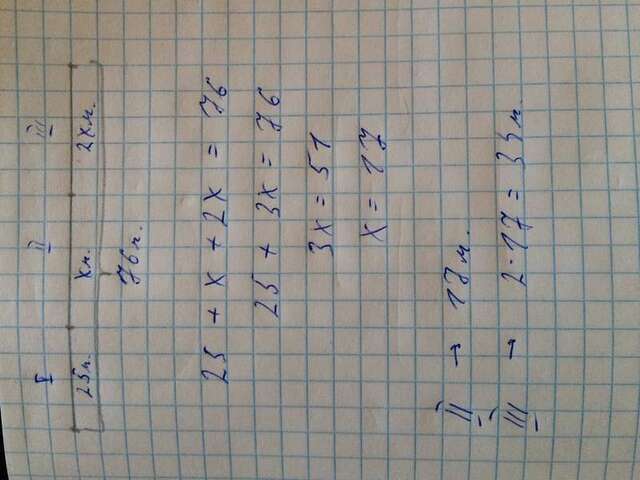 I II III
25м. xм. 2xм.
76м.
25 + x + 2x = 76
25 + 3x = 76
3x = 51
x = 17
II → 17м.
III → 2·17 = 34м.